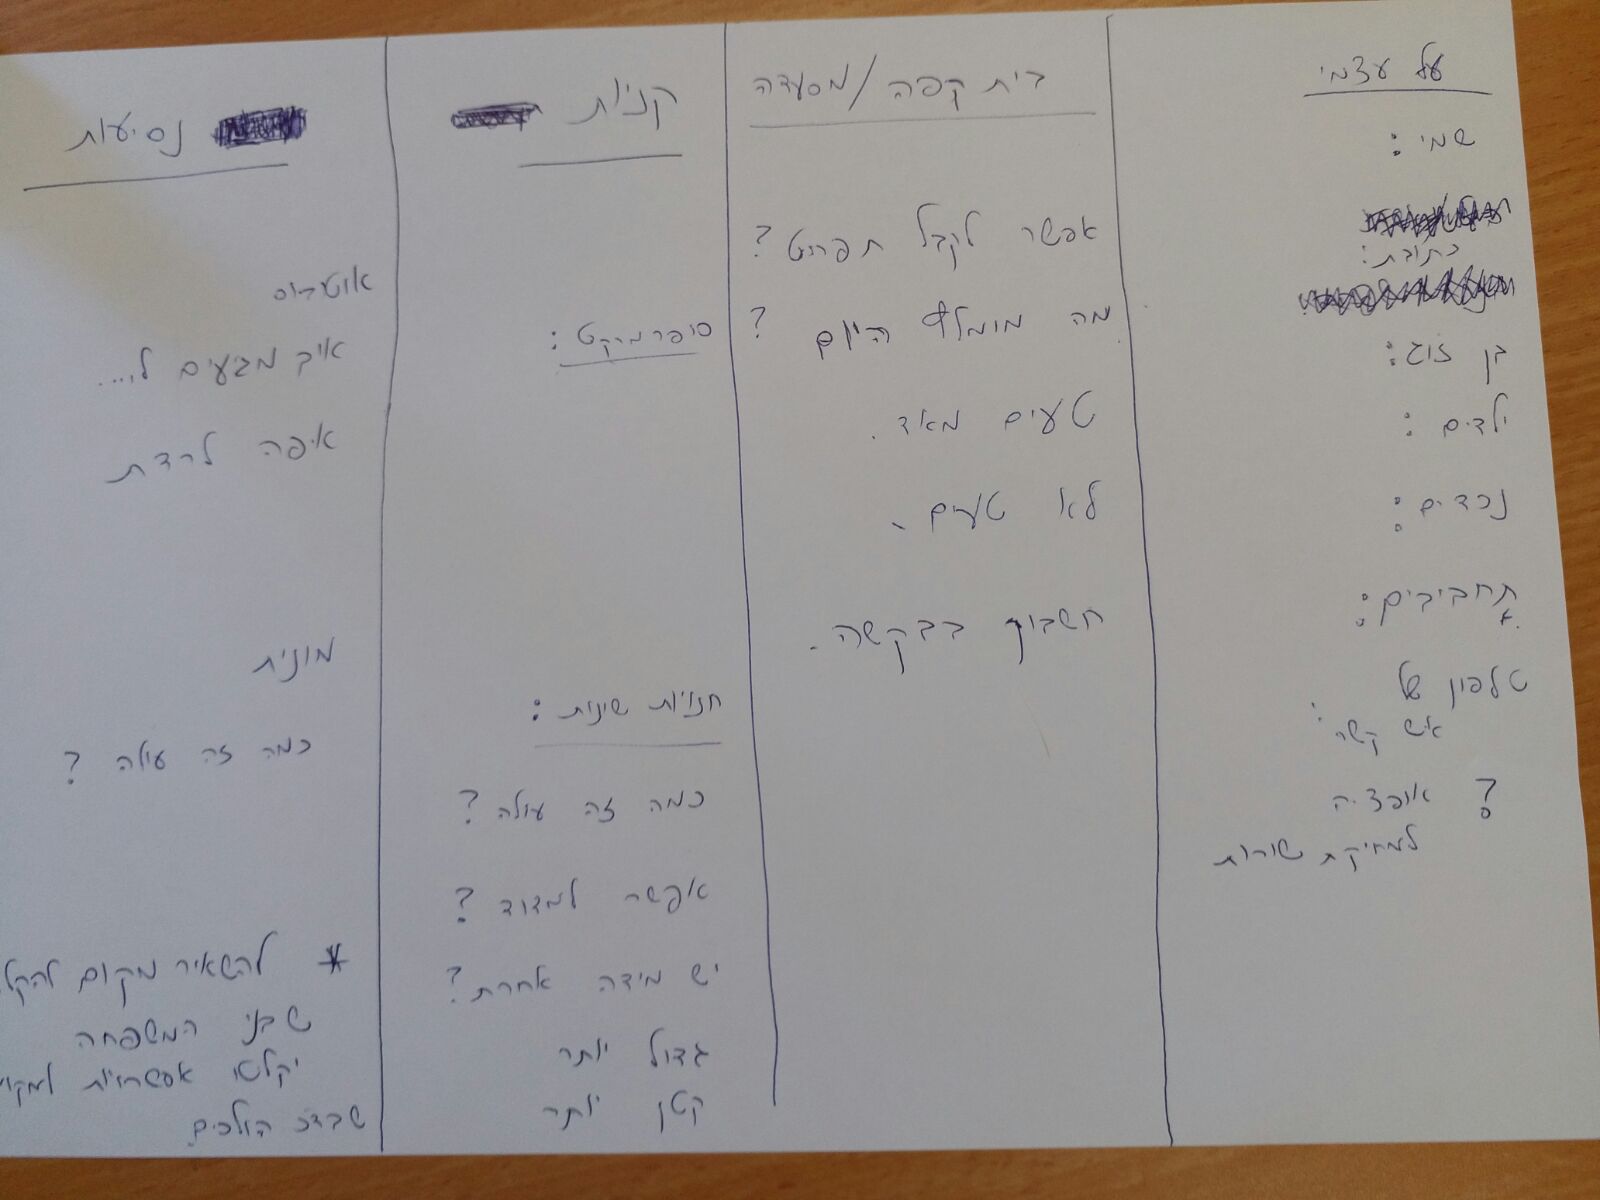 על עצמי
שמי:
כתובת:
בן זוג:
ילדים:
נכדים:
תחביבים:
טלפון של
איש קשר:
? אופציה
למחיקת שורות
בית קפה/מסעדה
אפשר לקבל תפריט?
מה מומלץ היום?
טעים מאד.
לא טעים.
חשבון בבקשה.
קניות
סופרמרקט:
חנויות שונות:
כמה זה עולה?
אפשר למדוד?
יש מידה אחרת?
גדול יותר
קטן יותר
נסיעות
אוטובוס
איך מגיעים ל....
איפה לרדת
מונית
כמה זה עולה?
* להשאיר מקום
שבני המשפחה
יקלטו אפשרויות
הולכים